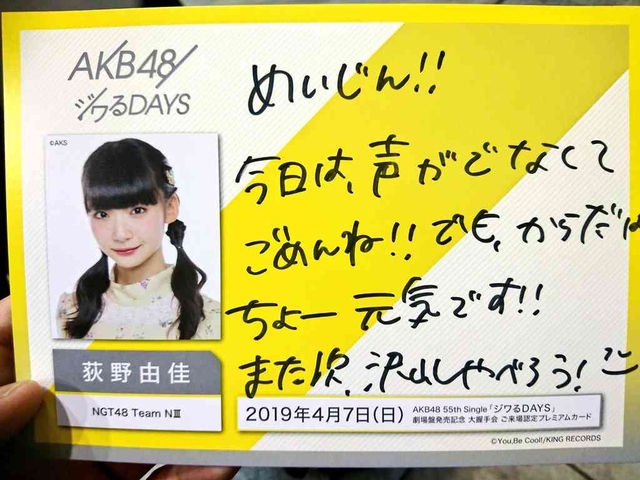 AKB48
ジワるDAYS
©AKS
めいじん!!
今日は、声がでなくて
ごめんね!!でも、からだは
ちょー元気です!!
また次、沢山しゃべろう!
荻野由佳
NGT48 Team NⅢ
2019年4月7日(日)
AKB48 55th Single「ジワるDAYS」
劇場盤発売記念 大握手会 ご来場認定プレミアムカード
©You,Be Cool!/KING RECORDS